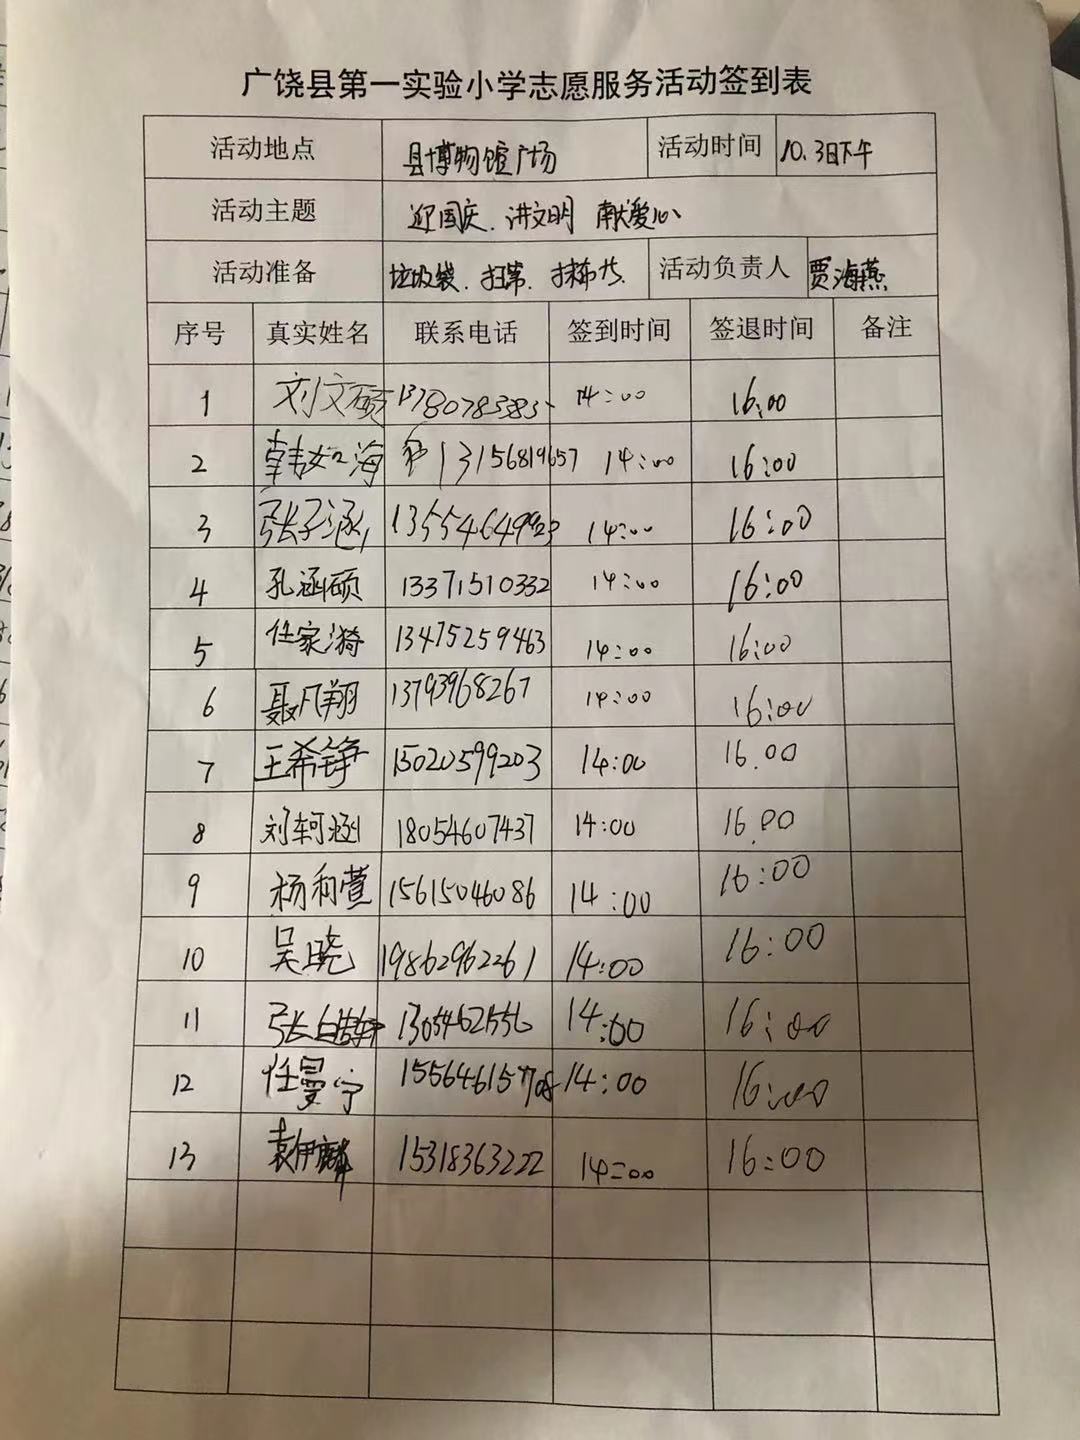 广饶县第一实验小学志愿服务活动签到表
活动地点 县博物馆广场 活动时间 10.3日下午
活动主题 迎国庆、讲文明 献爱心
活动准备 垃圾袋、扫帚、抹布等 活动负责人 贾海燕
序号 真实姓名 联系电话 签到时间 签退时间 备注
1 刘文硕 14:00 16:00
2 韩如海 13156819657 14:00 16:00
3 张子涵 14:00 16:00
4 孔涵硕 13371510332 14:00 16:00
5 任家漪 13475259463 14:00 16:00
6 聂凡翔 13793968267 14:00 16:00
7 王希铮 15020599203 14:00 16.00
8 刘轲涵 18054607437 14:00 16.00
9 杨和萱 15615046086 14:00 16:00
10 吴晓 19862962261 14:00 16:00
11 14:00 16:00
12 任曼宁 15564615708 14:00 16:00
13 袁伊麟 15318363222 14:00 16:00